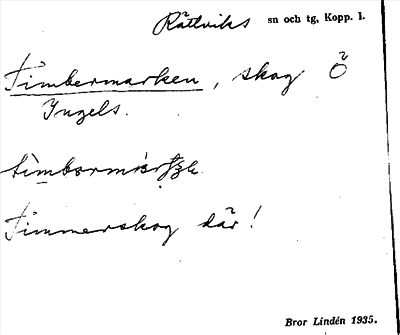 Rättviks sn och tg, Kopp. l.
Timbermarken, skog Ö
Ingels.
Timmerskog där!
Bror Lindén 1935.